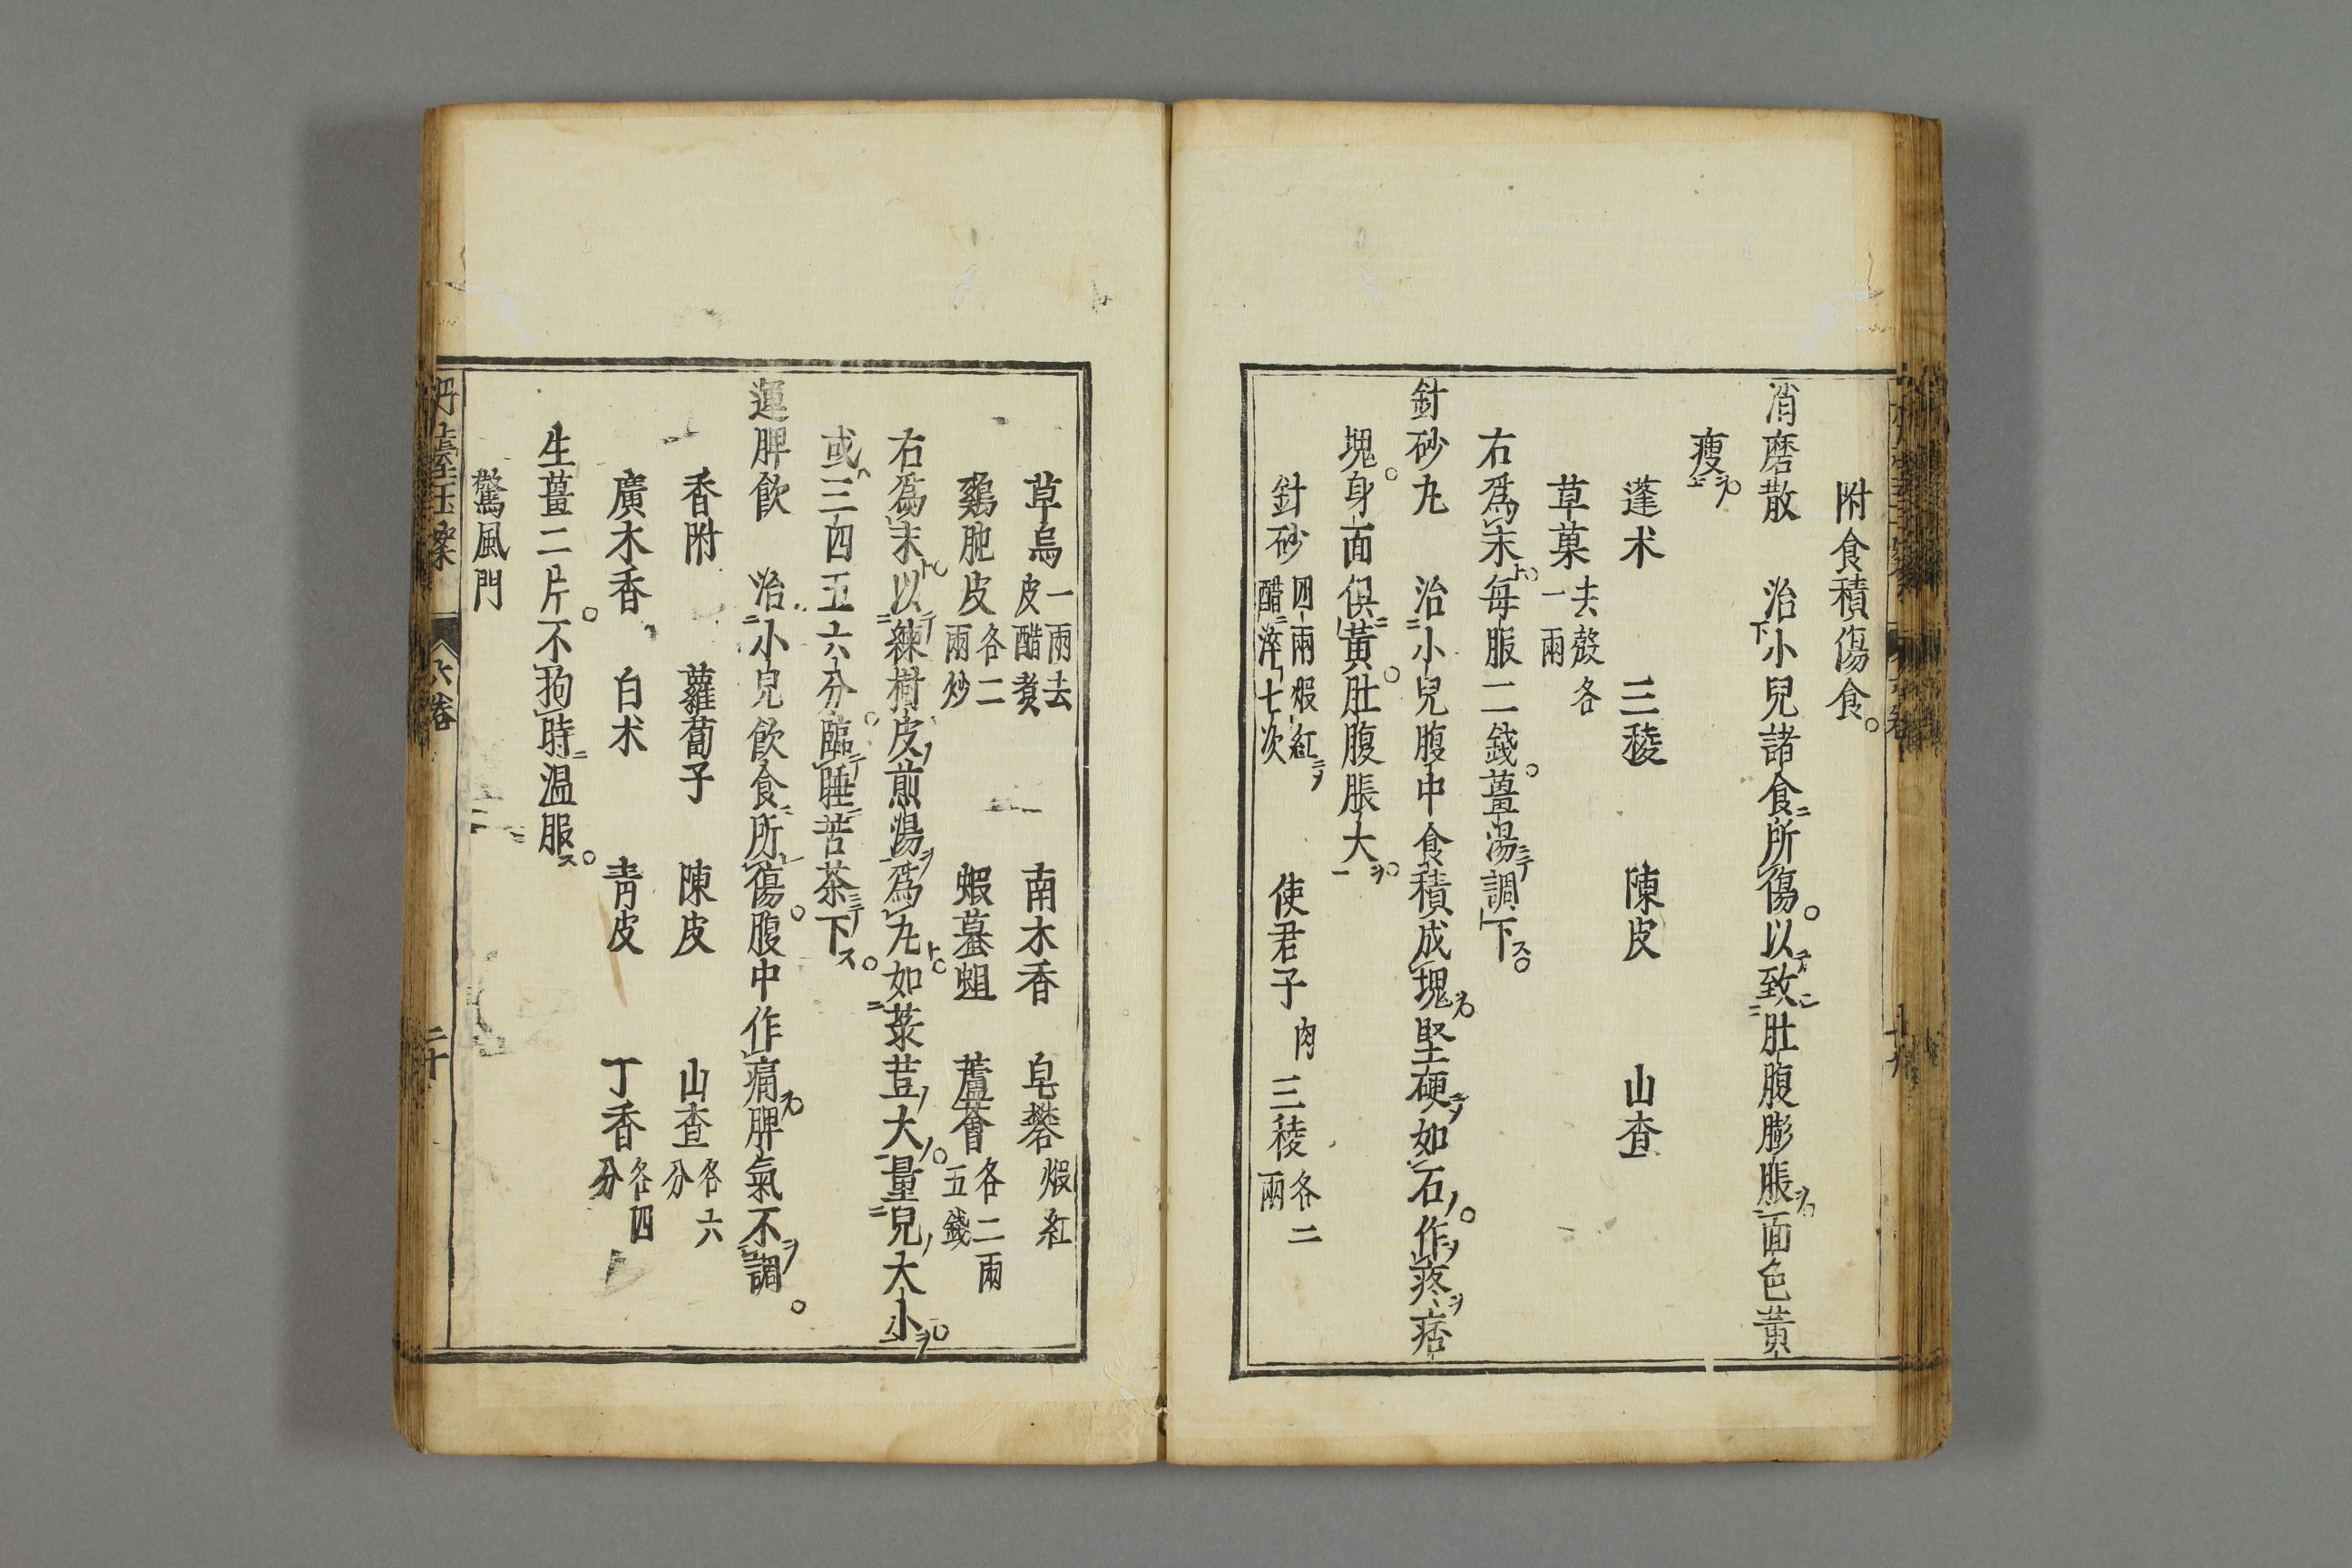 附食積傷食。
消磨散　治小兒諸食所傷。以致肚腹膨脹面色黃
瘦
蓬朮　三稜　陳皮　山査
草菓去殼各一兩
右爲末每服二錢。薑湯調下。
針砂丸　治小兒腹中食積成塊堅硬如石。作疼痞
塊。身面俱黃。肚腹脹大
針砂四兩煅紅醋淬七次　使君子肉　三稜各二兩
草烏一兩去皮醋煑　南木香　皂礬煅紅
鷄肫皮各二兩炒　蝦蟇蛆　蘆薈各二兩五錢
右爲末以練樹皮煎湯爲丸如菉荳大。量兒大小
或三四五六分。臨睡苦茶下。
運脾飲　治小兒飲食所傷。腹中作痛脾氣不調。
香附　蘿蔔子　陳皮　山査各六分
廣木香　白朮　靑皮　丁香各四分
生薑二片。不拘時温服。
驚風門
臺玉案　六卷　二十